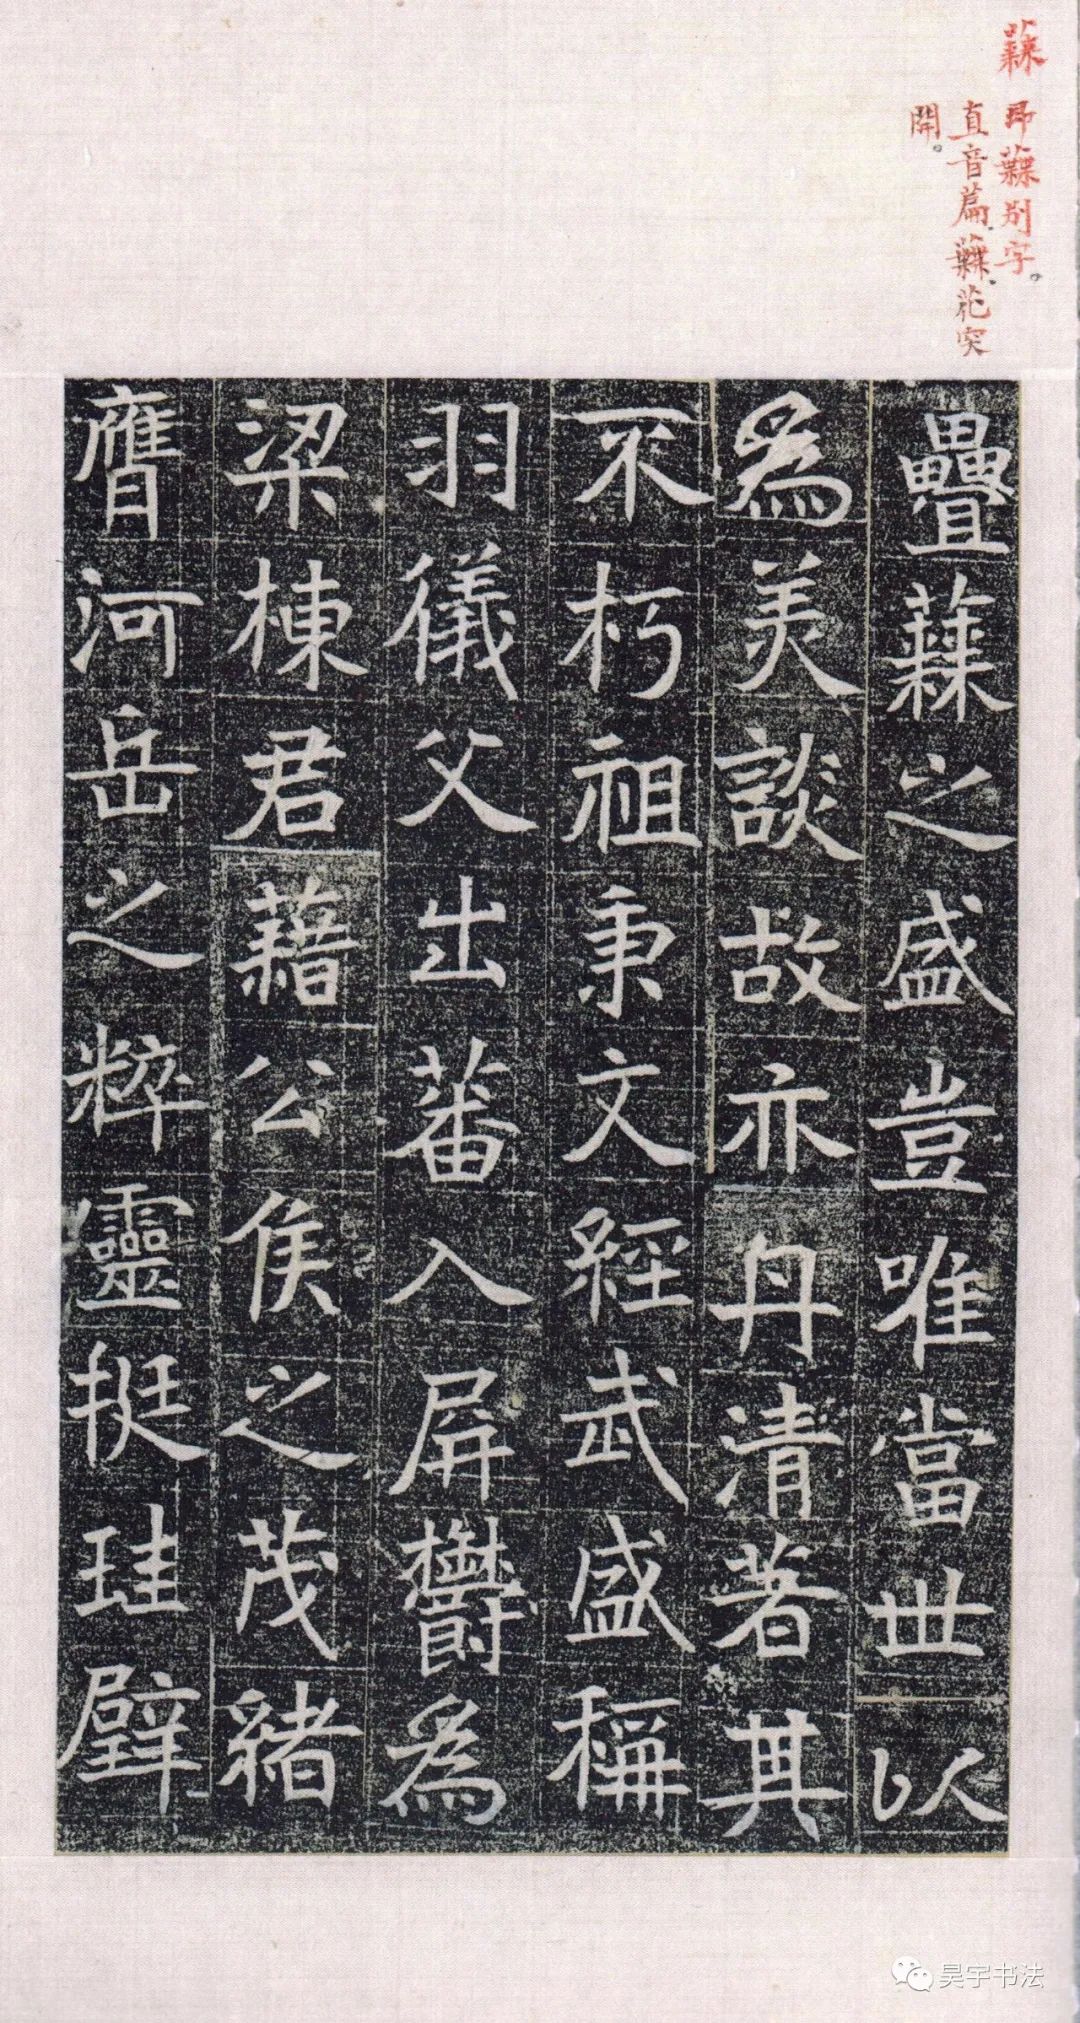 即別字。
直音篇、花突
開。
疊之盛豈唯當世以
為美談故亦丹清著其
不朽祖秉文經武盛稱
羽儀父出蕃入屏欝為
梁棟君藉公侯之茂緒
膺河岳之粹靈挺珪璧
昊宇书法